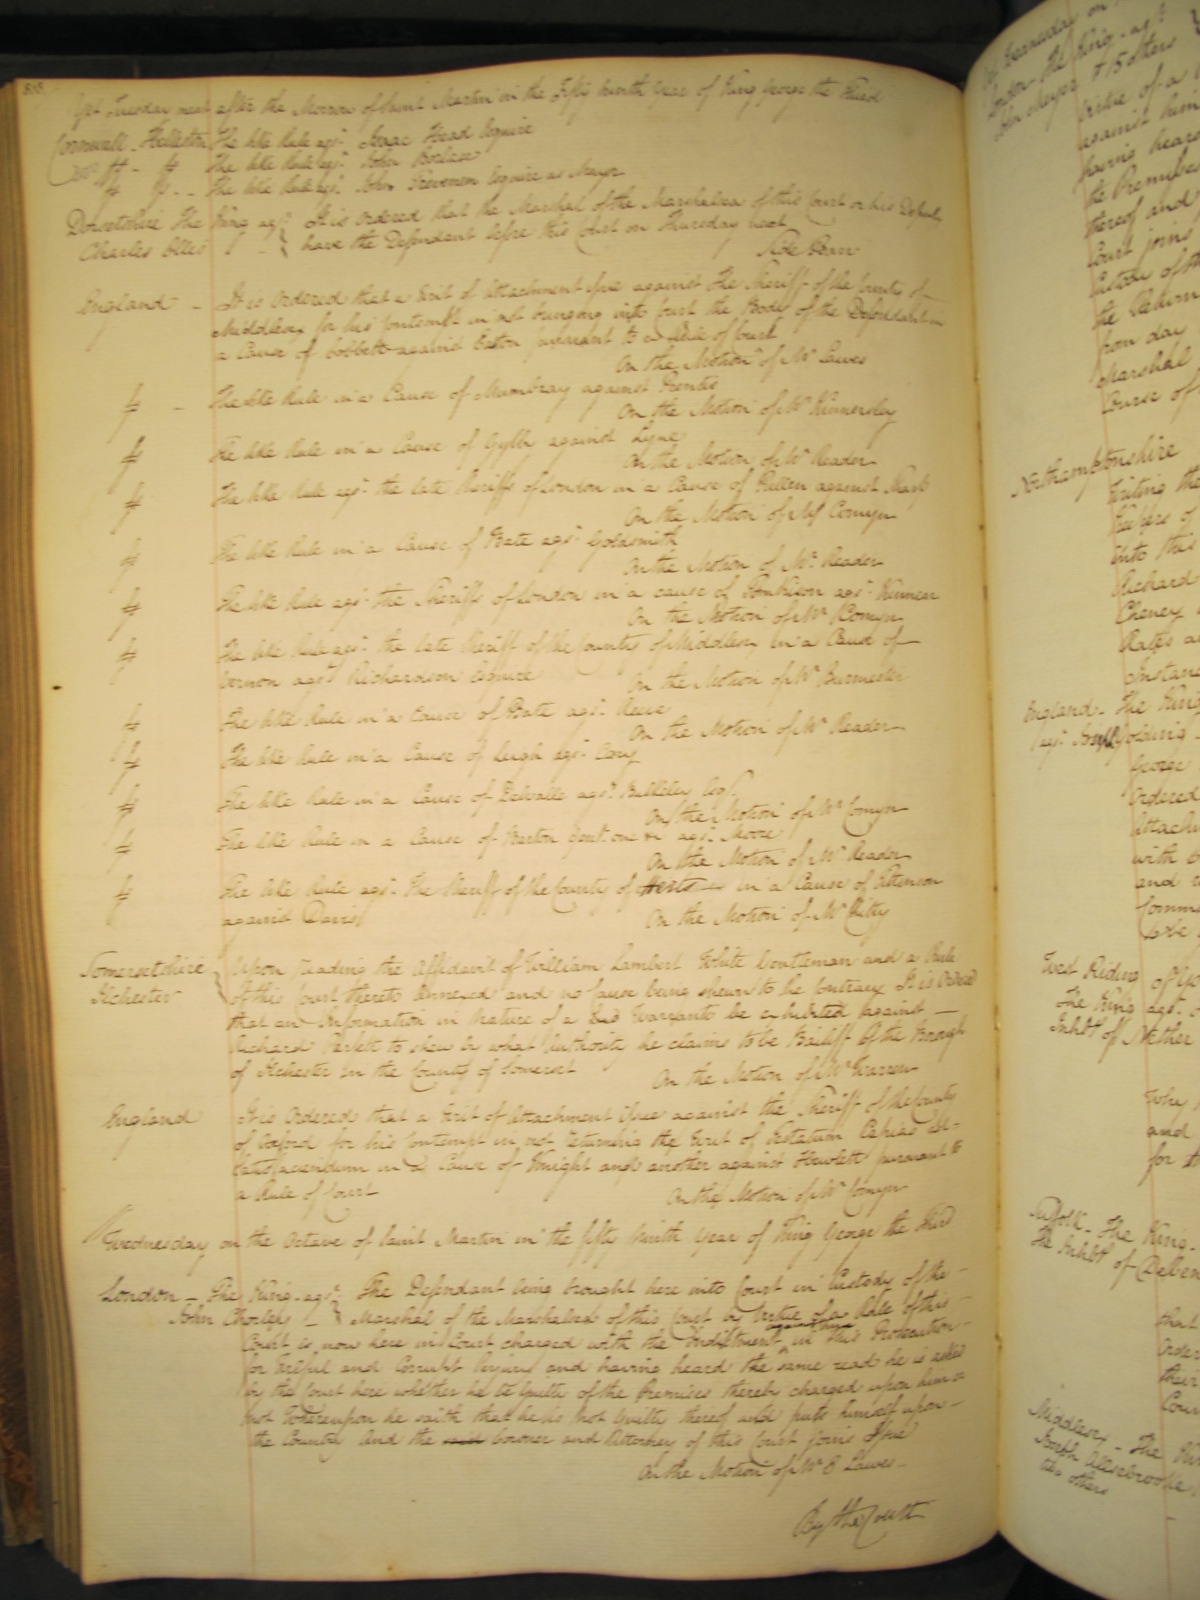 Yet Tuesday next after the Morrow of Saint Martin in the Fifty ninth Year of King George the Third
Cornwall - Helleston The like Rule agt. Isaac Head Esquire
The like Rule agt. John Borlase
The like Rule agt. John Trevenen Esquire as Mayor
Dorsetshire The King agt } It is Ordered that the Marshal of the Marshalsea of this Court or his Deputy
Charles Elles } have the Defendant before this Court on Thursday next
Side Barr
England - It is Ordered that a Writ of Attachment issue against the Sheriff of the County of
Middlesex for his Contempt in not bringing into Court the Body of the Defendant in
a Cause of Cobbett against Easton pursuant to a Rule of Court
On the Motion of Mr Lawes
The like Rule in a Cause of Mumbray against Prentis
On the Motion of Mr Kinnersley
The like Rule in a Cause of Gylby against Lyne
On the Motion of Mr Reader
The like Rule agt. the late Sheriffs of London in a Cause of Pullen against
On the Motion of Mr Comyn
The like Rule in a Cause of Bate agt. Goldsmith
On the Motion of Mr. Reader
The like Rule agt. the Sheriffs of London in a cause of Tomkison agt. Kinnear
On the Motion of Mr Comyn
The like Rule agt. the late Sheriff of the County of Middlesex in a Cause of
Vernon agt. Richardson Esquire On the Motion of Mr Burmester
The like Rule in a Cause of Bate agt. Reeve
On the Motion of Mr Reader
The like Rule in a Cause of Leigh agt. Cory
The like Rule in a Cause of Delvalle agt. Bulkeley Esq.
On the Motion of Mr Comyn
The like Rule in a Cause of Barton Gent. one &c agt. Moore
On the Motion of Mr Reader
The like Rule agt. The Sheriff of the County of Herts in a Cause of
against Davis On the Motion of Mr Chitty
Somersetshire } Upon reading the Affidavit of William Lambert White Gentleman and a Rule
Ilchester of this Court thereto Annexed and no Cause being shewn to the contrary It is Ordered
that an Information in Nature of a Quo Warranto be exhibited against
Richard to shew by what Authority he claims to be Bailiff of the Borough
of Ilchester in the County of Somerset On the Motion of Mr Warren
England It is Ordered that a Writ of Attachment issue against the Sheriff of the County
of Oxford for his Contempt in not returning the Writ of Testatum Capias ad
Satisfaciendum in a Cause of Knight and another against Hewlett pursuant to
a Rule of Court On the Motion of Mr Comyn
Wednesday on the Octave of Saint Martin in the fifty Ninth Year of King George the Third
London - The King agt. } The Defendant being brought here into Court in Custody of the
John Chorley } Marshal of the Marshalsea of this Court by Virtue of a Rule of this
Court is now here in Court charged with the Indictment against him in this Prosecution
for Wilful and Corrupt Perjury and having heard the same read he is asked
by the Court here whether he be Guilty of the Premises thereby charged upon him or
not Whereupon he saith that he is not Guilty thereof and puts himself upon
the Country And the said Coroner and Attorney of this Court joins Issue
On the Motion of Mr E Lawes
By the Court
Wednesday on
London - The King agt
& 15 others
Virtue of a
against him
having heard
the Premises
thereof and
Court joins
Custody of the
the Return
from day
Marshal
Course of
Northamptonshire
Writing the
Keepers of
into this
Richard
Cheney
Rates a
Instance
England - The King
agt. Joseph Golding
George
Ordered
Attach
with
and
Comm
to be
West Riding of Yo
The King agt.
Inhbts of Nether
Why
and
for
Suffolk - The King
The Inhbts of
that
Order
their
Court
Middlesex - The Kin
ten others